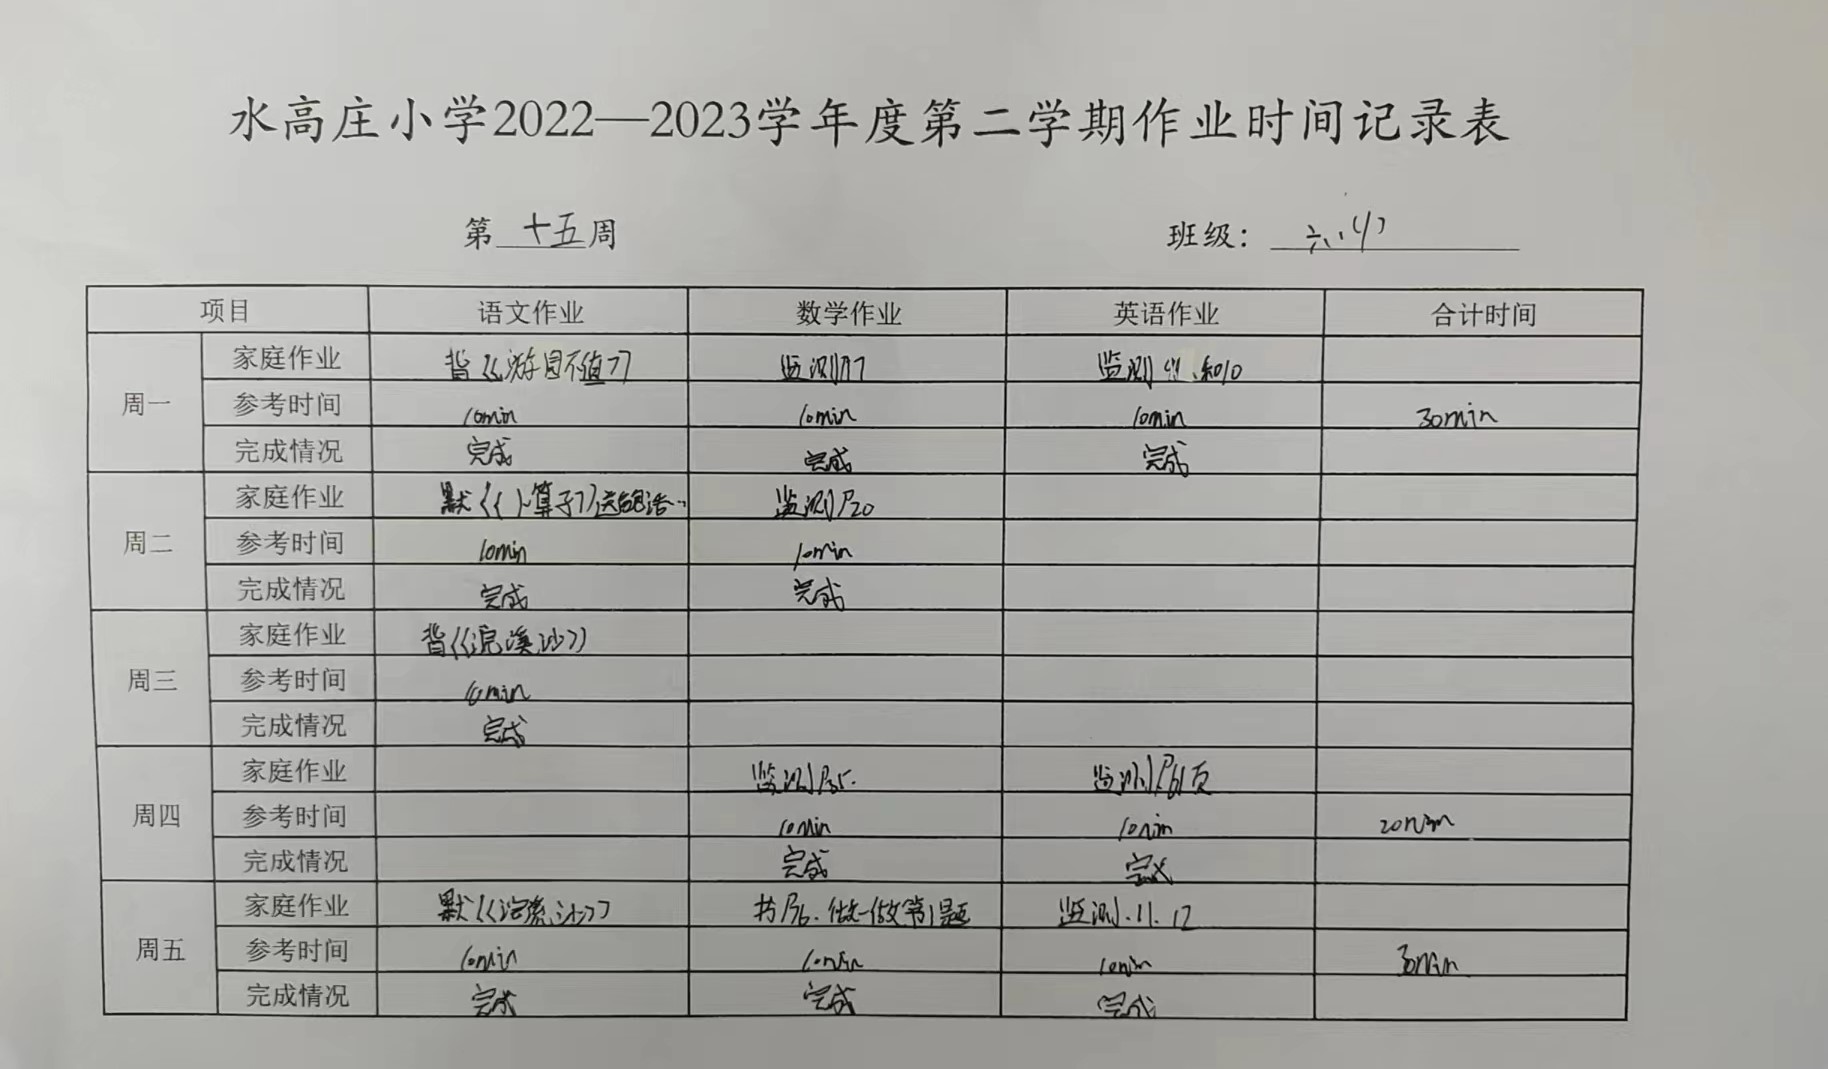 水高庄小学2022—2023学年度第二学期作业时间记录表
第 十五 周 班级： 六、(1)
项目 语文作业 数学作业 英语作业 合计时间
周一
家庭作业 背《游园不值》 监测 监测 和10
参考时间 10min 10min 10min 30min
完成情况 完成 完成 完成
周二
家庭作业 默《卜算子》送鲍浩… 监测P20
参考时间 10min 10min
完成情况 完成 完成
周三
家庭作业 背《浣溪沙》
参考时间 10min
完成情况 完成
周四
家庭作业 监测P35. 监测P61页
参考时间 10min 10min 20min
完成情况 完成 完成
周五
家庭作业 默《浣溪沙》 书P36.做一做第1题 监测.11.12
参考时间 10min 10min 10min 30min
完成情况 完成 完成 完成